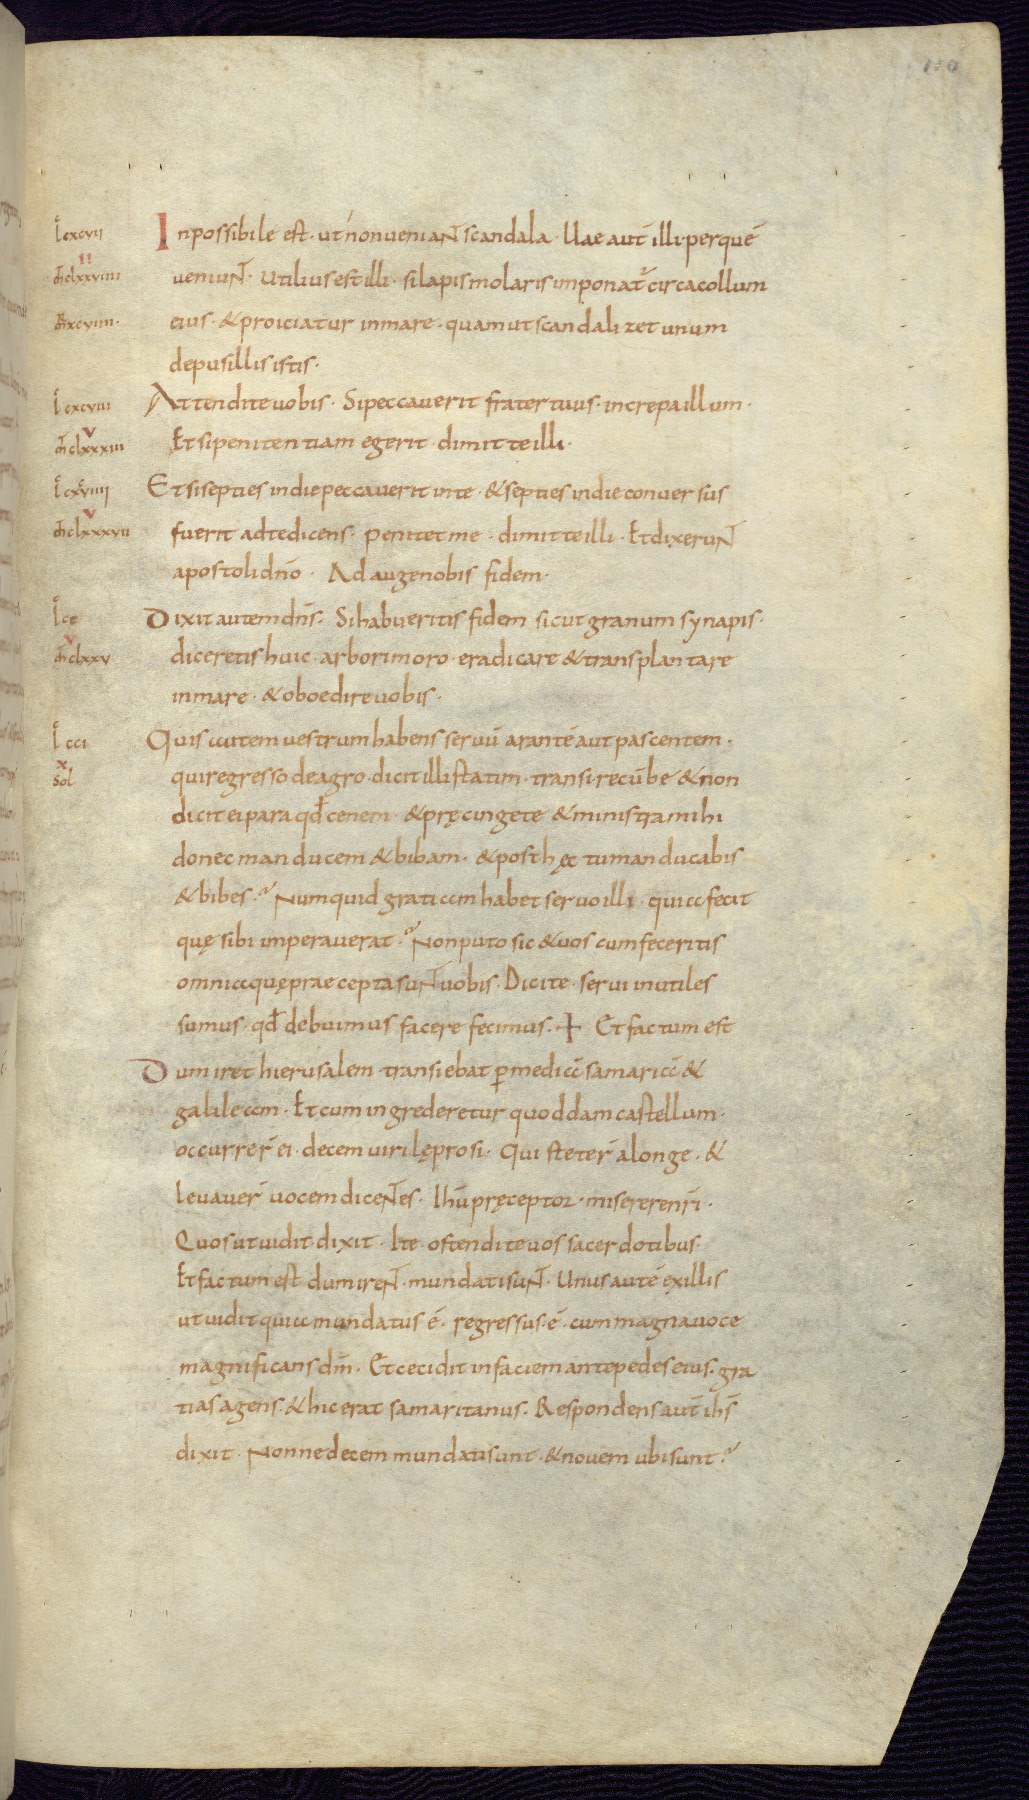 130
L cxcvii
Inpossibile est · ut non veniaNT scandala · Uae aut̄ illi · per quē
II
m̄ clxxviiii
veniuNT · Utilius est illi · si lapis molaris imponat̄ circa collum
m̄r xcviiii ·
eius · & proiciatur in mare · quam ut scandalizet unum
de pusillis istis ·
L cxcviii
Attendite vobis · Si peccaverit frater tuus · increpa illum ·
V
m̄ clxxxiii
Et si penitentiam egerit · dimitte illi ·
L cxcviiii
Et si septies in die peccaverit in te · & septies in die conversus
V
m̄ clxxxvii
fuerit ad te dicens · penitet me · dimitte illi · Et dixeruNT
apostoli dn̄o · Adauge nobis fidem ·
L cc
Dixit autem dn̄s · Si habueritis fidem sicut granum synapis ·
V
m̄ clxxv
diceretis huic · arbori moro · eradicare & transplantare
in mare · & oboedire vobis ·
L cci
Quis autem vestrum habens servū arantē aut pascentem ·
X
sol
qui regresso de agro · dicit illi statim · transi recūbe & non
dicit ei para qđ cenem · & pręcinge te & ministra mihi
donec manducem & bibam · & post hęc tu manducabis
& bibes ? Numquid gratiam habet servo illi · quia fecit
quę sibi imperaverat ? Non puto sic & vos cum feceritis
omnia quę praecepta suNT vobis · Dicite · servi inutiles
sumus · qđ debuimus facere fecimus · + Et factum est
Dum iret hierusalem · transiebat p̄ mediā samariā &
galileam · Et cum ingrederetur quoddam castellum ·
occurrer̄ ei · decem viri lęprosi · Qui steter̄ a longe · &
levaver̄ vocem diceNTes · Ihū pręceptor · miserere nr̄i ·
Quos ut vidit · dixit · Ite · ostendite vos sacerdotibus ·
Et factum est dum ireNT · mundati suNT · Unus autē ex illis
ut vidit quia mundatus ē · regressus · ē · cum magna voce
magnificans dm̄ · Et cecidit in faciem ante pedes eius · gra
tias agens · & hic erat samaritanus · Respondens aut̄ ihs̄
dixit · Nonne decem mundati sunt · & novem ubi sunt ?